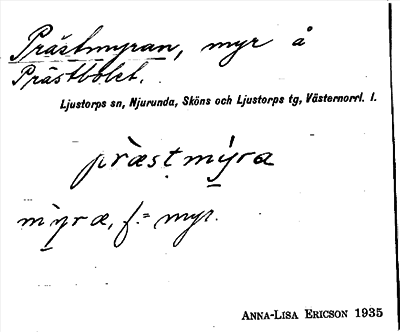 Prästmyran, myr å
Prästbolet.
Ljustorps sn, Njurunda, Sköns och Ljustorps tg, Västernorrl. l.
præ̀stmýra
mỳræ, f. = myr.
ANNA-LISA ERICSON 1935